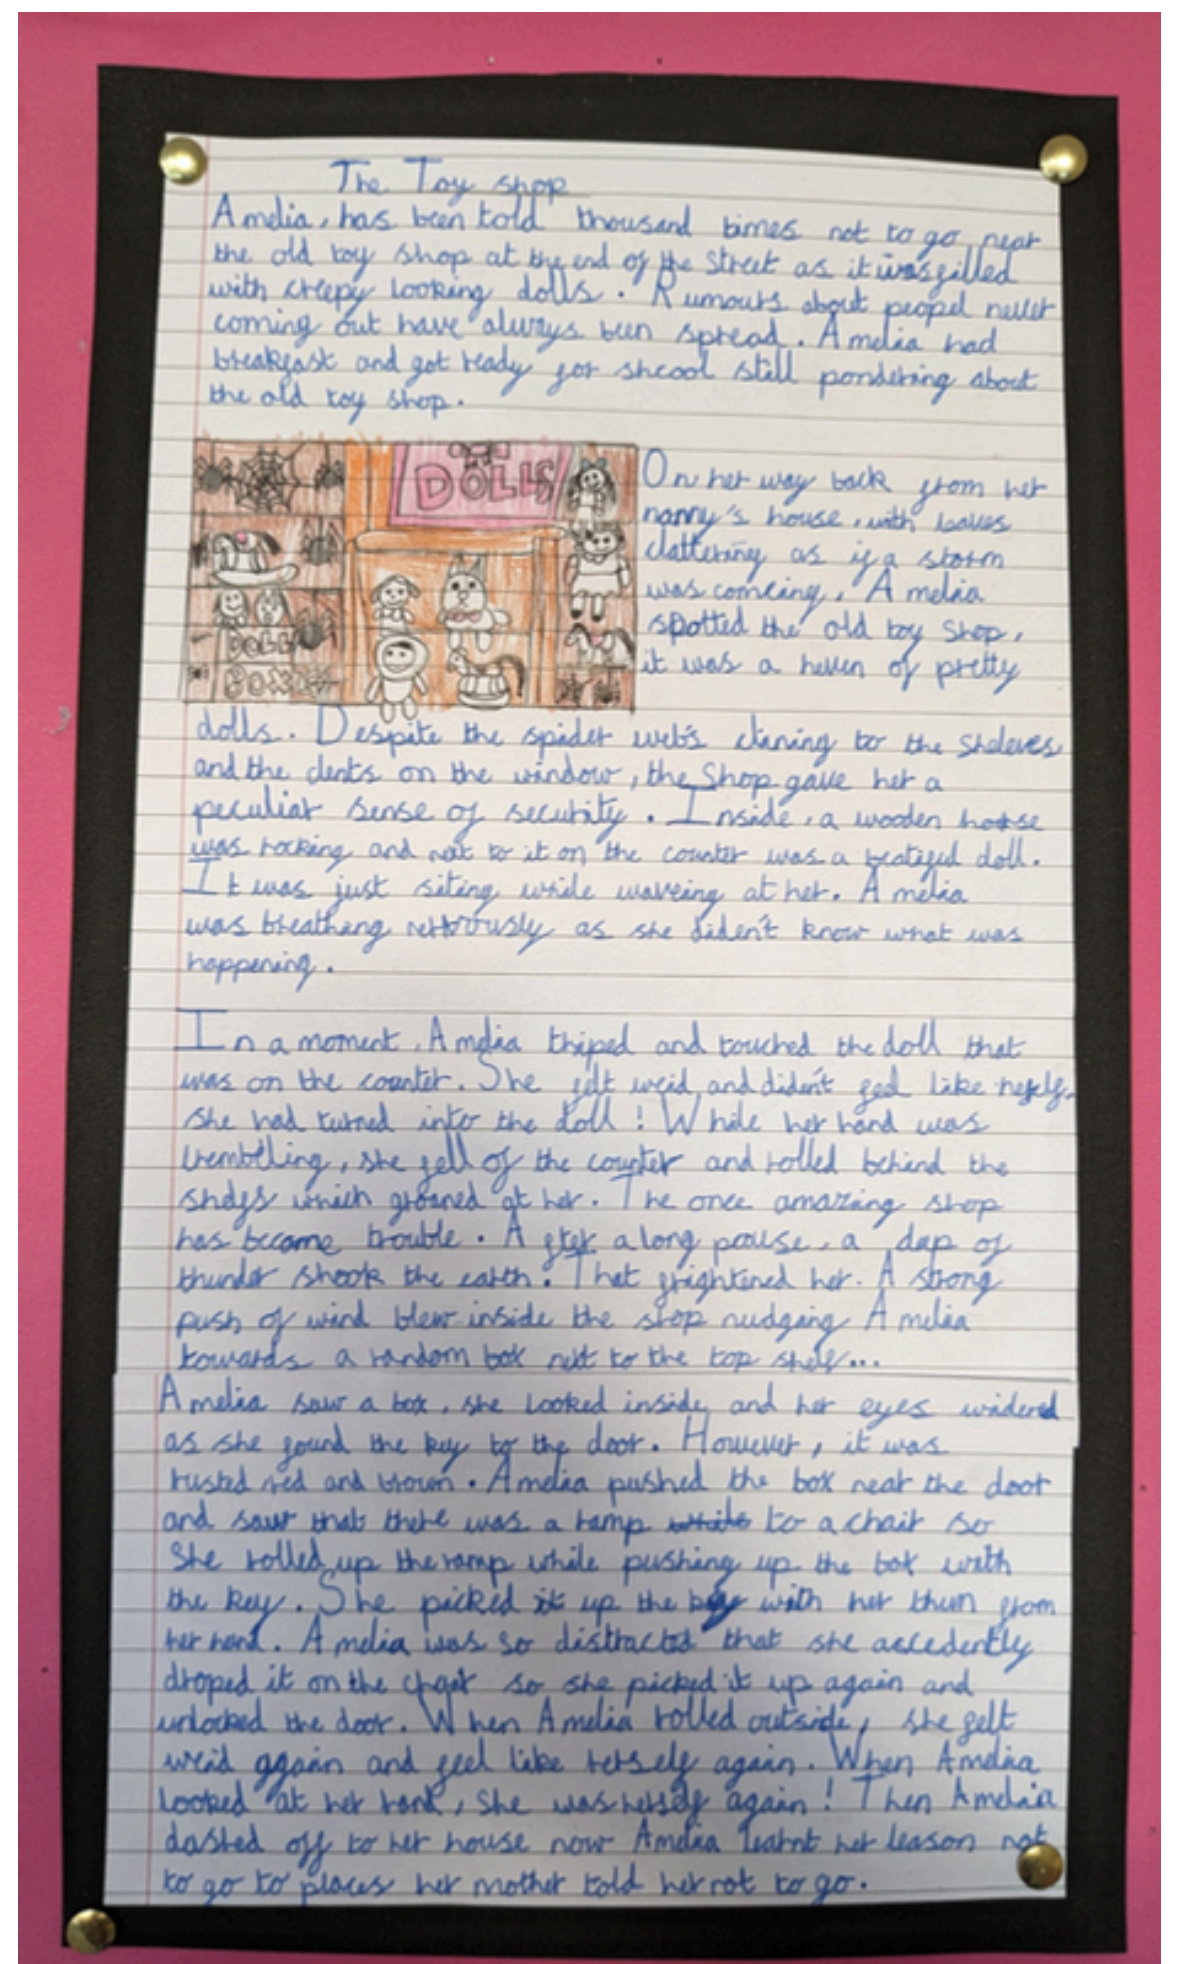 The Toy shop
Amelia, has been told thousand times not to go near
the old toy shop at the end of the street as it was filled
with creepy looking dolls. Rumours about peopel never
coming out have always been spread. Amelia had
breakfast and got ready for shcool still pondering about
the old toy shop.
DOLLS
DOLL
BOX
On her way back from her
nanny's house, with leaves
clattering as if a storm
was comeing, Amelia
spotted the old toy shop,
it was a heven of pretty
dolls. Despite the spider web's clining to the sheleves
and the dents on the window, the shop gave her a
peculiar sense of security. Inside, a wooden horse
was rocking and next to it on the counter was a beatiful doll.
It was just siting while waveing at her. Amelia
was breathing nervously as she dident know what was
happening.
In a moment, Amelia thriped and touched the doll that
was on the counter. She felt weid and dident feel like herself,
she had turned into the doll! While her hand was
trembling, she fell of the counter and rolled behind the
shelfs which groaned at her. The once amazing shop
has become trouble. After a long pause, a clap of
thunder shook the earth. That frightened her. A strong
push of wind blew inside the shop nudging Amelia
towards a random box next to the top shelf...
Amelia saw a box, she looked inside and her eyes widened
as she found the key to the door. However, it was
rusted red and brown. Amelia pushed the box near the door
and saw that there was a ramp to a chair so
she rolled up the ramp while pushing up the box with
the key. She picked it up the key with her thum from
her hand. Amelia was so distracted that she accedently
droped it on the chair so she picked it up again and
unlocked the door. When Amelia rolled outside, she felt
weid again and feel like herself again. When Amelia
looked at her hand, she was herself again! Then Amelia
dashed off to her house now Amelia learnt her leason not
to go to places her mother told her not to go.